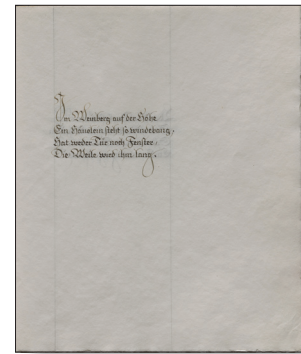 Im Weinberg auf der Höhe
Ein Häuslein steht so windebang,
Hat weder Tür noch Fenster,
Die Weile wird ihm lang.